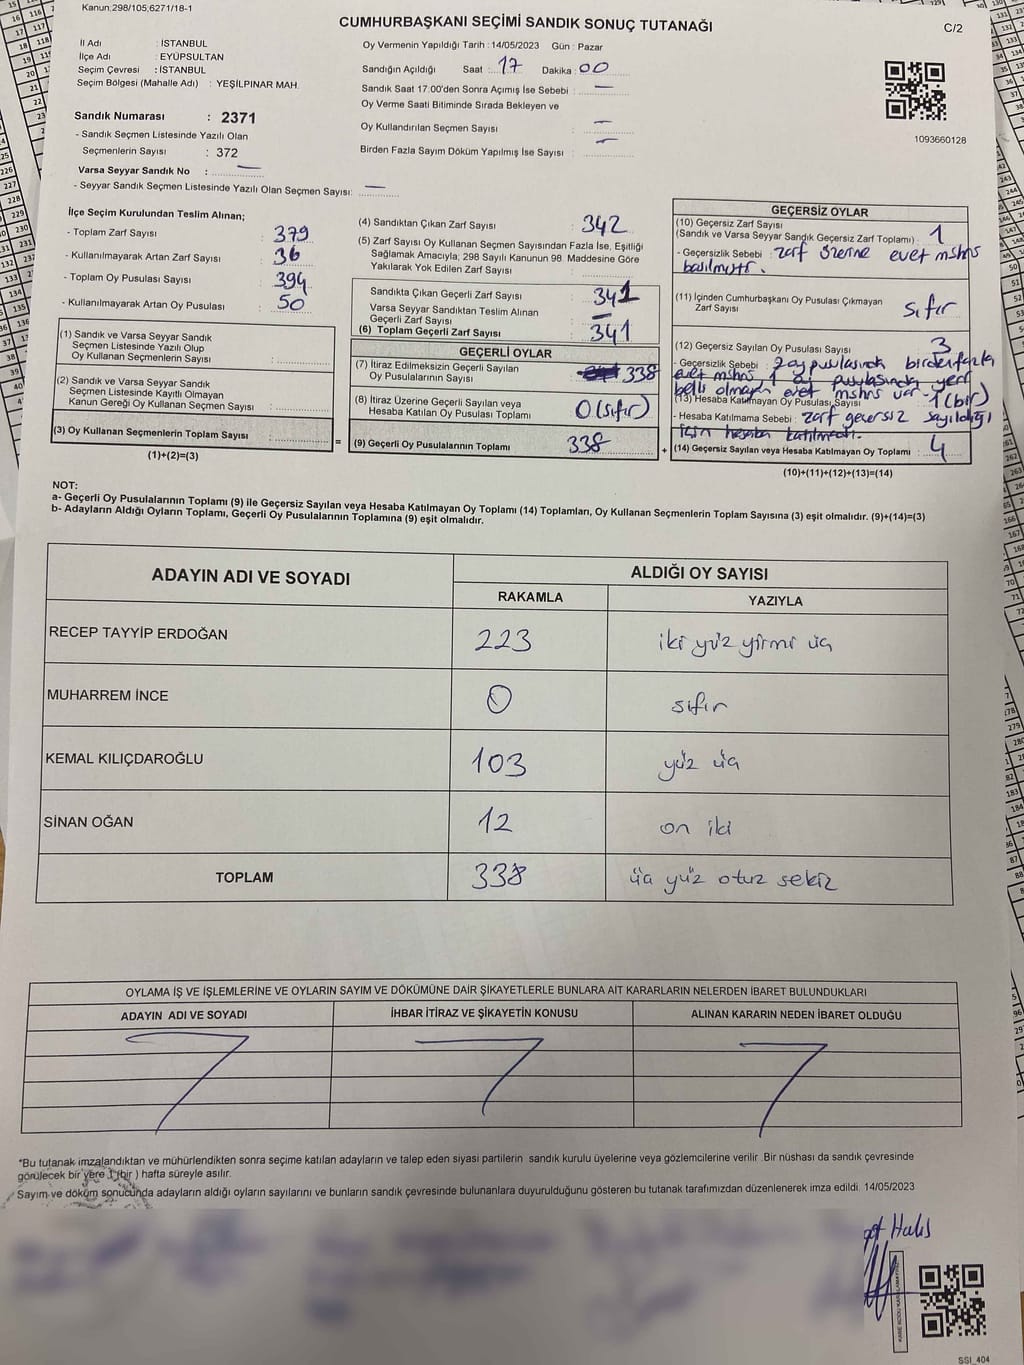 Kanun:298/105;6271/18-1
CUMHURBAŞKANI SEÇİMİ SANDIK SONUÇ TUTANAĞI
C/2
İl Adı : İSTANBUL
İlçe Adı : EYÜPSULTAN
Seçim Çevresi : İSTANBUL
Seçim Bölgesi (Mahalle Adı) : YEŞİLPINAR MAH.
Sandık Numarası : 2371
- Sandık Seçmen Listesinde Yazılı Olan
Seçmenlerin Sayısı : 372
Varsa Seyyar Sandık No : —
- Seyyar Sandık Seçmen Listesinde Yazılı Olan Seçmen Sayısı: —
Oy Vermenin Yapıldığı Tarih : 14/05/2023 Gün : Pazar
Sandığın Açıldığı Saat : 17 Dakika : 00
Sandık Saat 17.00'den Sonra Açımış İse Sebebi : —
Oy Verme Saati Bitiminde Sırada Bekleyen ve
Oy Kullandırılan Seçmen Sayısı : —
Birden Fazla Sayım Döküm Yapılmış İse Sayısı : —
1093660128
İlçe Seçim Kurulundan Teslim Alınan;
- Toplam Zarf Sayısı : 379
- Kullanılmayarak Artan Zarf Sayısı : 36
- Toplam Oy Pusulası Sayısı : 394
- Kullanılmayarak Artan Oy Pusulası : 50
(1) Sandık ve Varsa Seyyar Sandık
Seçmen Listesinde Yazılı Olup
Oy Kullanan Seçmenlerin Sayısı :
(2) Sandık ve Varsa Seyyar Sandık
Seçmen Listesinde Kayıtlı Olmayan
Kanun Gereği Oy Kullanan Seçmen Sayısı :
(3) Oy Kullanan Seçmenlerin Toplam Sayısı :
(1)+(2)=(3)
=
(4) Sandıktan Çıkan Zarf Sayısı : 342
(5) Zarf Sayısı Oy Kullanan Seçmen Sayısından Fazla İse, Eşitliği
Sağlamak Amacıyla; 298 Sayılı Kanunun 98. Maddesine Göre
Yakılarak Yok Edilen Zarf Sayısı :
Sandıkta Çıkan Geçerli Zarf Sayısı : 341
Varsa Seyyar Sandıktan Teslim Alınan
Geçerli Zarf Sayısı : —
(6) Toplam Geçerli Zarf Sayısı : 341
GEÇERLİ OYLAR
(7) İtiraz Edilmeksizin Geçerli Sayılan
Oy Pusulalarının Sayısı : 338
(8) İtiraz Üzerine Geçerli Sayılan veya
Hesaba Katılan Oy Pusulası Toplamı : 0 (sıfır)
(9) Geçerli Oy Pusulalarının Toplamı : 338
+
GEÇERSİZ OYLAR
(10) Geçersiz Zarf Sayısı
(Sandık ve Varsa Seyyar Sandık Geçersiz Zarf Toplamı) : 1
- Geçersizlik Sebebi : zarf üzerine evet mührü
basılmıştı.
(11) İçinden Cumhurbaşkanı Oy Pusulası Çıkmayan
Zarf Sayısı : sıfır
(12) Geçersiz Sayılan Oy Pusulası Sayısı : 3
- Geçersizlik Sebebi : 2 oy pusulasında birden fazla
evet mührü 1 oy pusulasında yeri
belli olmayan evet mührü var
(13) Hesaba Katılmayan Oy Pusulası Sayısı : 1 (bir)
- Hesaba Katılmama Sebebi : zarf geçersiz sayıldığı
için hesaba katılmadı.
(14) Geçersiz Sayılan veya Hesaba Katılmayan Oy Toplamı : 4
(10)+(11)+(12)+(13)=(14)
NOT:
a- Geçerli Oy Pusulalarının Toplamı (9) ile Geçersiz Sayılan veya Hesaba Katılmayan Oy Toplamı (14) Toplamları, Oy Kullanan Seçmenlerin Toplam Sayısına (3) eşit olmalıdır. (9)+(14)=(3)
b- Adayların Aldığı Oyların Toplamı, Geçerli Oy Pusulalarının Toplamına (9) eşit olmalıdır.
ADAYIN ADI VE SOYADI
ALDIĞI OY SAYISI
RAKAMLA YAZIYLA
RECEP TAYYİP ERDOĞAN 223 iki yüz yirmi üç
MUHARREM İNCE 0 sıfır
KEMAL KILIÇDAROĞLU 103 yüz üç
SİNAN OĞAN 12 on iki
TOPLAM 338 üç yüz otuz sekiz
OYLAMA İŞ VE İŞLEMLERİNE VE OYLARIN SAYIM VE DÖKÜMÜNE DAİR ŞİKAYETLERLE BUNLARA AİT KARARLARIN NELERDEN İBARET BULUNDUKLARI
ADAYIN ADI VE SOYADI İHBAR İTİRAZ VE ŞİKAYETİN KONUSU ALINAN KARARIN NEDEN İBARET OLDUĞU
*Bu tutanak imzalandıktan ve mühürlendikten sonra seçime katılan adayların ve talep eden siyasi partilerin sandık kurulu üyelerine veya gözlemcilerine verilir .Bir nüshası da sandık çevresinde
görülecek bir yere 1 (bir ) hafta süreyle asılır.
Sayım ve döküm sonucunda adayların aldığı oyların sayılarını ve bunların sandık çevresinde bulunanlara duyurulduğunu gösteren bu tutanak tarafımızdan düzenlenerek imza edildi. 14/05/2023
Halis
SSI_404